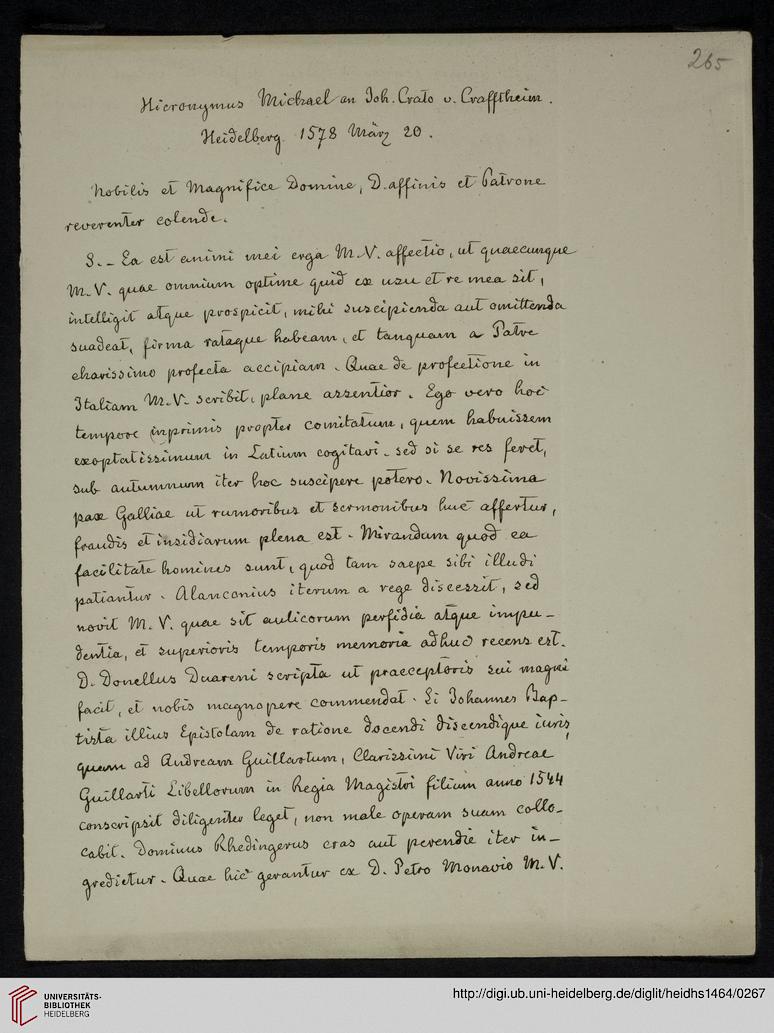 265
Hieronymus Michael an Joh. Crato v. Crafftheim.
Heidelberg 1578 März 20.
Nobilis et Magnifice Domine, D. affinis et Patrone
reverenter colende.
S. - Ea est animi mei erga M. V. affectio, ut quaecunque
M. V. quae omnium optime quid ex usu et re mea sit,
intelligit atque prospicit, mihi suscipienda aut omittenda
suadeat, firma rataque habeam, et tanquam a Patre
charissimo profecta accipiam. Quae de profectione in
Italiam M. V. scribit, plane assentior. Ego vero hoc
tempore inprimis propter comitatum, quem habuissem
exoptatissimum in Latium cogitavi. sed si se res feret,
sub autumnum iter hoc suscipere potero. Novissima
pax Galliae ut rumoribus et sermonibus huc affertur,
fraudis et insidiarum plena est. Mirandum quod ea
facilitate homines sunt, quod tam saepe sibi illudi
patiantur. Alanconius iterum a rege discessit, sed
novit M. V. quae sit aulicorum perfidia atque impu-
dentia, et superioris temporis memoria adhuc recens est.
D. Donellus Duareni scripta ut praeceptoris sui magni
facit, et nobis magnopere commendat. Si Johannes Bap-
tista illius Epistolam de ratione docendi discendique iuris,
quam ad Andream Guillartum, Clarissimi Viri Andreae
Guillarti Libellorum in Regia Magistri filium anno 1544
conscripsit diligenter leget, non male operam suam collo-
cabit. Dominus Rhedingerus cras aut perendie iter in-
gredietur. Quae hic gerantur ex D. Petro Monavio M. V.
UNIVERSITÄTS-
BIBLIOTHEK
HEIDELBERG
http://digi.ub.uni-heidelberg.de/diglit/heidhs1464/0267